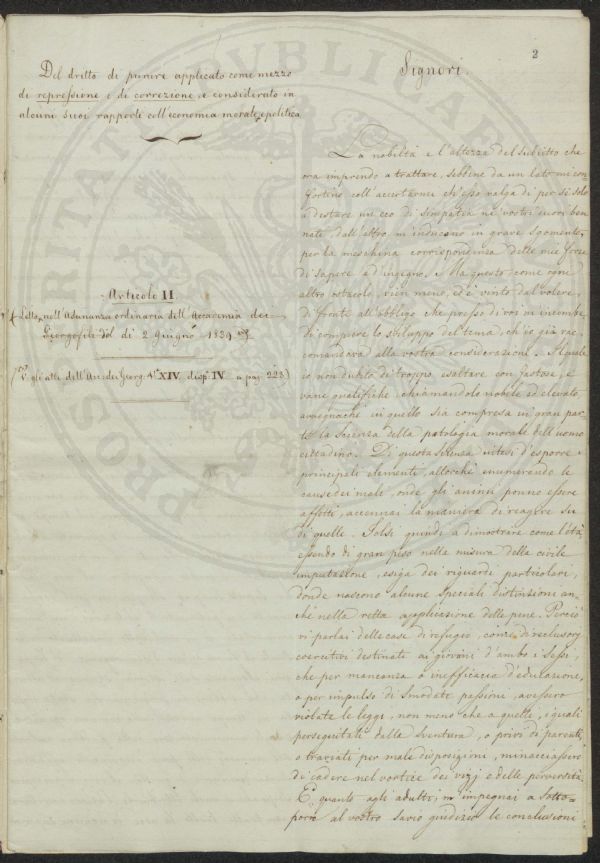 2
Del dritto di punire applicato come mezzo
di repressione e di correzione, e considerato in
alcuni suoi rapporti coll'economia morale, e politica
Articolo II.
Letto nell'Adunanza ordinaria dell'Accademia dei
Georgofili del di 2 Giugno 1839.
(V. gli atti dell'Acc. dei Georg. T. XIV, disp. IV. a pag. 223.)
Signori.
La nobiltà e l'altezza del subietto che
ora imprendo a trattare, sebbene da un lato mi con
fortino coll'accertarme ch'esso valga di per sè solo
a destare un eco di simpatia ne' vostri cuori ben
nati, dall'altro m'inducono in grave sgomento,
per la meschina corrispondenza delle mie forze
di sapere e d'ingegno. Ma questo come ogni
altro ostacolo, vien meno, ed è vinto dal volere,
di fronte all'obbligo che presso di voi m'incombe
di compiere lo sviluppo del tema, ch'io già rac
comandava alla vostra considerazione. Il quale
io non dubito di troppo esaltare con fastose, e
vane qualifiche, chiamandolo nobile ed elevato,
avvegnachè in quello sia compresa in gran par
te la scienza della patologia morale dell'uomo
cittadino. Di questa scienza intesi d'esporre i
principali elementi, allorchè enumerando le
cause dei mali, onde gli animi ponno essere
afflitti, accennai la maniera di reagire su
di quelle. Tolsi quindi a dimostrare come l'età,
essendo di gran peso nella misura della civile
imputazione, esiga dei riguardi particolari,
donde nascono alcune speciali distinzioni an
che nella retta applicazione delle pene. Perciò
vi parlai delle case di refugio, come di reclusorj
coercitivi destinati ai giovani d'ambo i sessi,
che per mancanza o inefficacia d'educazione,
o per impulso di smodate passioni, avessero
violate le leggi, non meno che a quelli, i quali
perseguitati dalla sventura, o privi di parenti,
o traviati per male disposizioni, minacciassero
di cadere nel vortice dei vizj e delle perversità.
E quanto agli adulti, m'impegnai a sotto=
porre al vostro savio giudizio le conclusioni